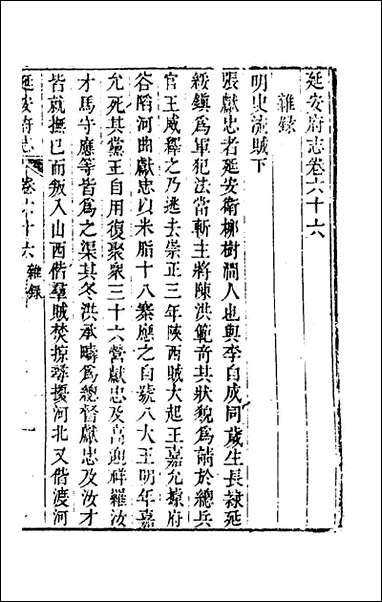 延安府志卷六十六
雜錄
明史流賊下
張獻忠者延安衛柳樹澗人也與李自成同歲生長隸延
綏鎮爲軍犯法當斬主將陳洪範奇其狀貌爲請於總兵
官王威釋之乃逃去崇正三年陝西賊大起王嘉允據府
谷陷河曲獻忠以米脂十八寨應之自號八大王明年嘉
允死其黨王自用復聚衆三十六營獻忠及高迎祥羅汝
才馬守應等皆爲之渠其冬洪承疇爲總督獻忠及汝才
皆就撫已而叛入山西偕羣賊焚掠尋擾河北又偕渡河
延安府志
卷六十六 雜錄
一